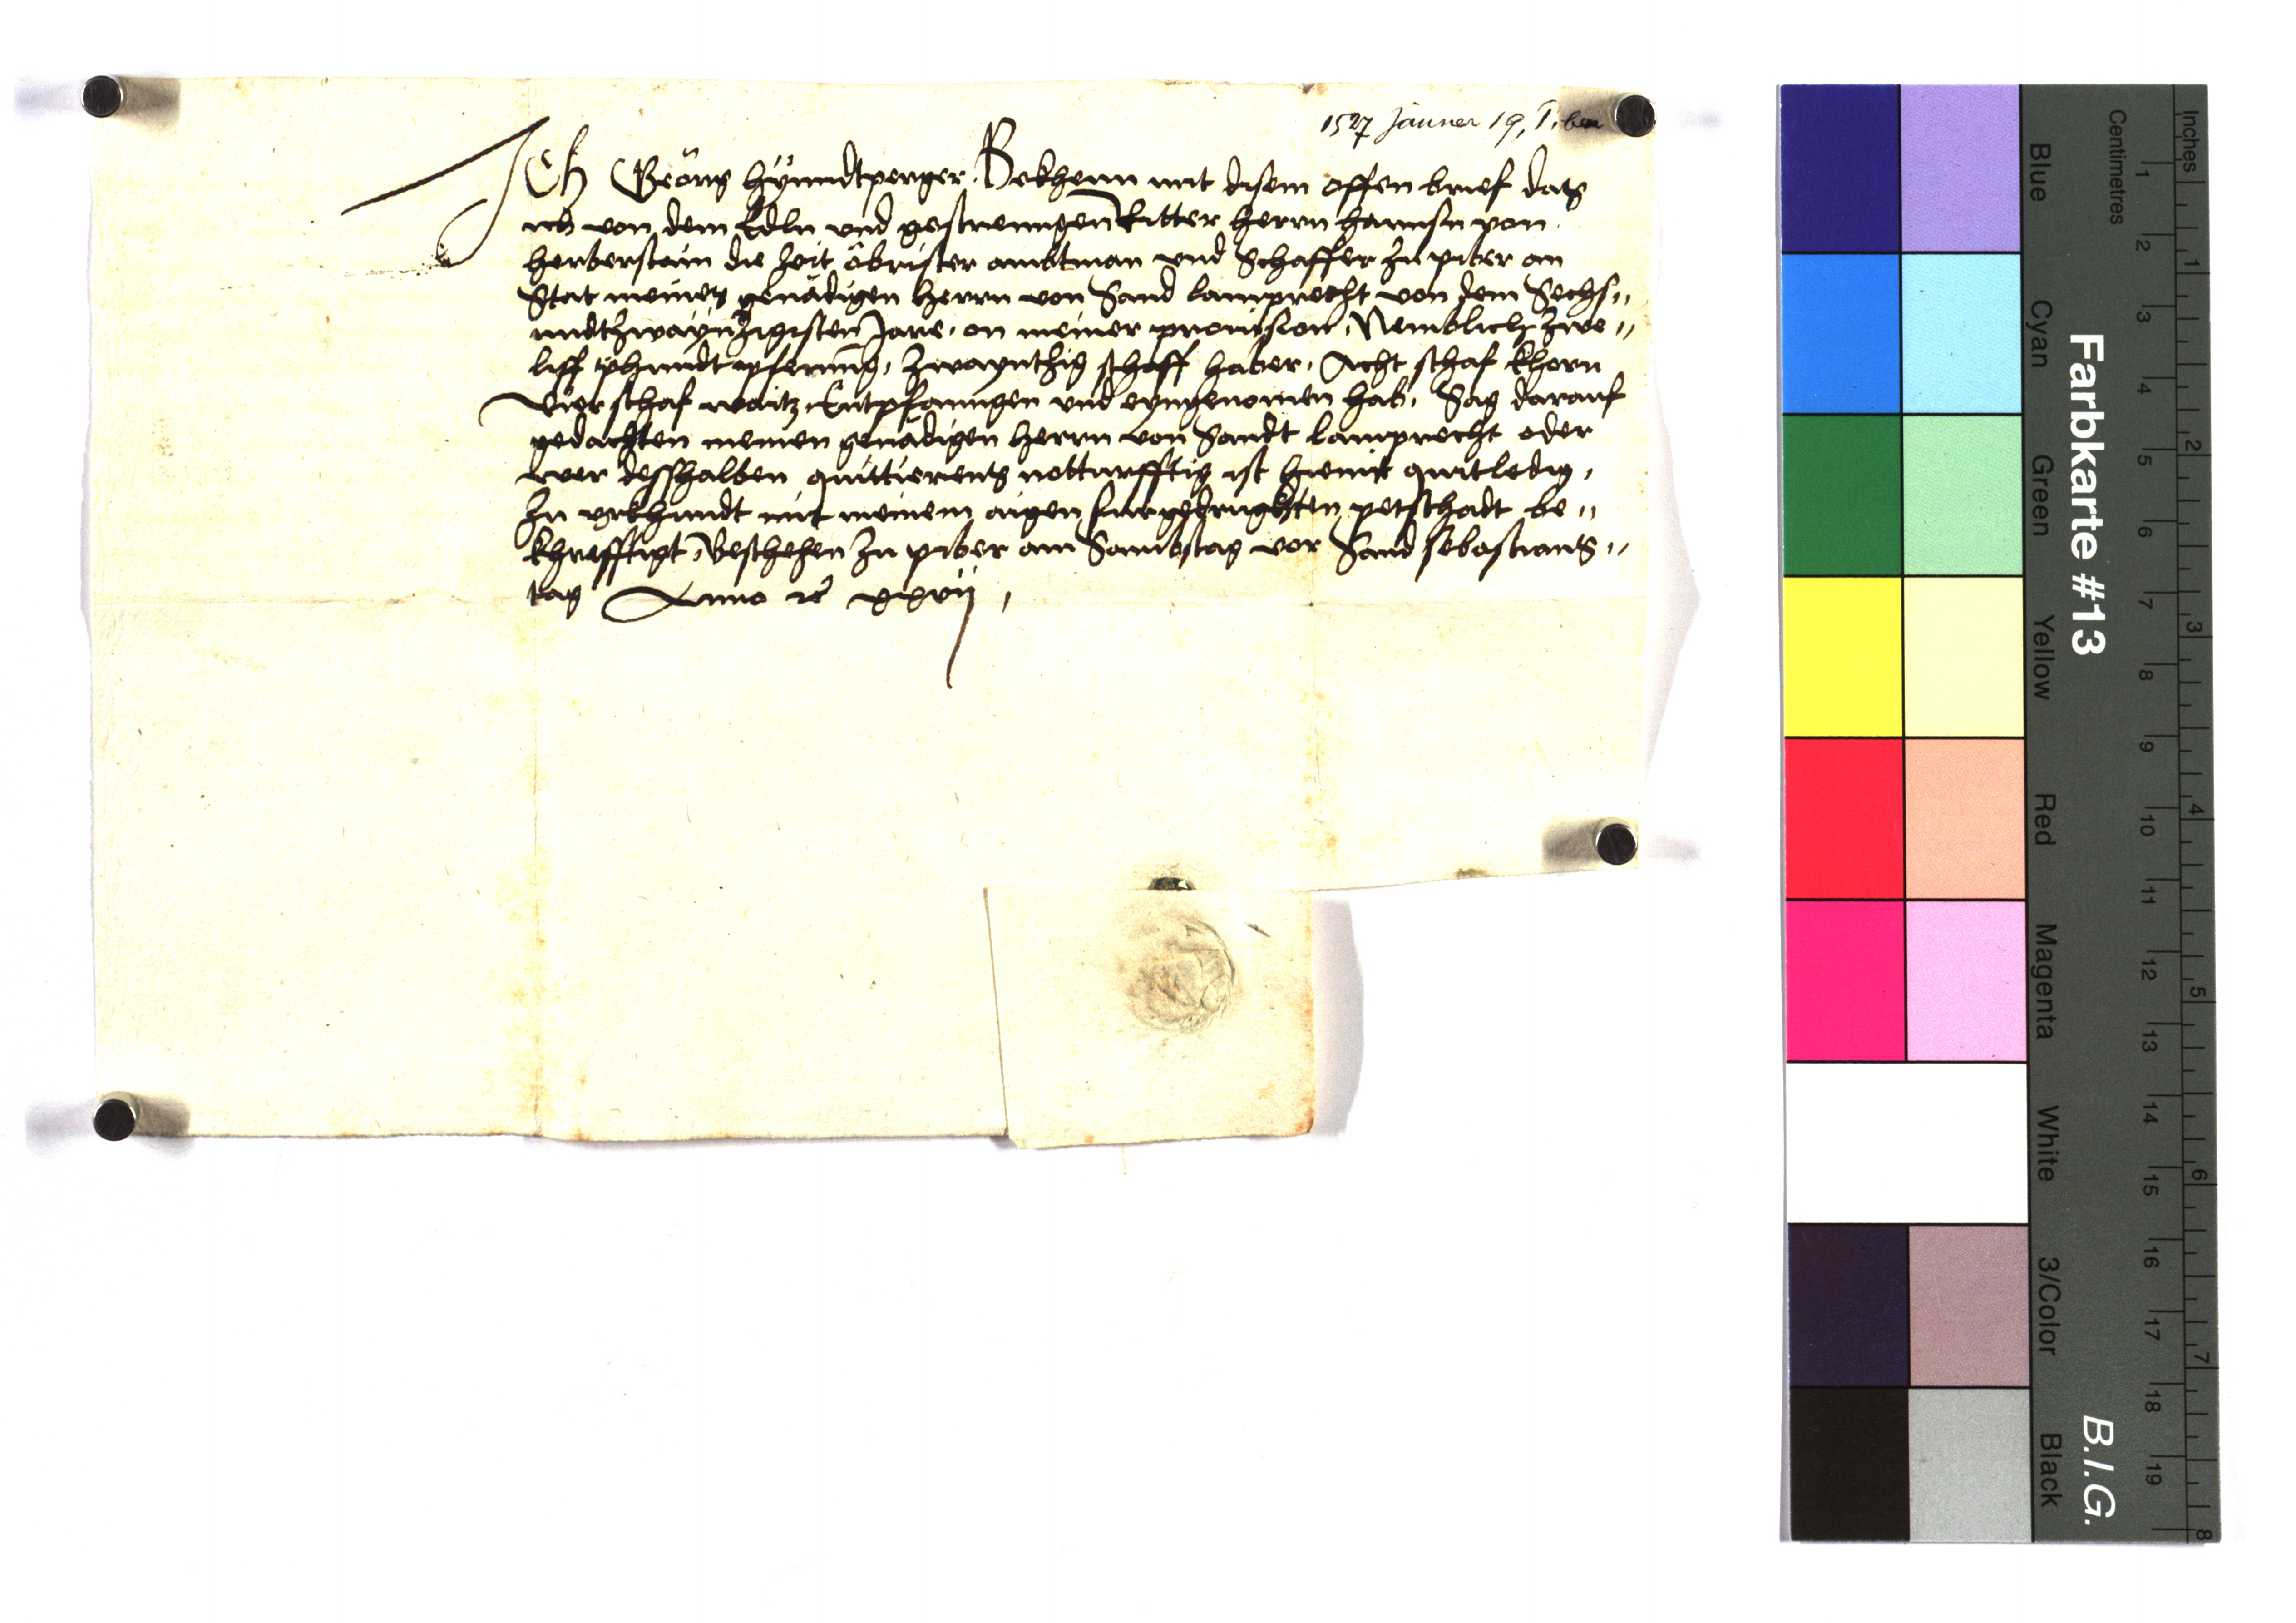 1527 Jänner 19, Piber
Ich Geörg hÿnndtperger Bekhenn mit disem offen brief das
ich von dem Edln und gestrenngen Ritter herrn hannsn von
herberstain die Zeit öbrister ambtman und Schaffer Zu piber an
Stat meines genädigen herrn von Sand lamprecht von dem Sechs„
undtzwaÿnzigisten Jare, an meiner provision, Nemblich zwe„
liff phundt pfening, Zwaynthzig schaff haber, Acht schaf khorn
Vier schaf waitz Entpfanngen und eyngenomen hab, Sag darauf
gedachten meinen genädigen herrn von Sandt lamprecht oder
wer desshalben quittierents notturfftig ist hiemit quitledig,
Zu urkhundt mit meinem aigen furgedrughten petschadt be„
khrefftigt, Beschehen Zu piber am Sambstag vor Sand sebastians„
tag Anno xxvii,
Inches
Centimetres
1 2 3 4 5 6 7 8
1 2 3 4 5 6 7 8 9 10 11 12 13 14 15 16 17 18 19
Farbkarte #13
B.I.G.
Blue
Cyan
Green
Yellow
Red
Magenta
White
3/Color
Black